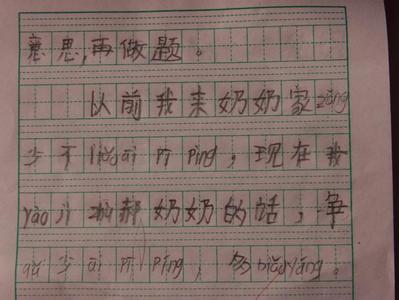 意思,再做题。
以前我来奶奶家zǒng
少不liǎo ai pī píng,现在我
yào jì 奶奶的话,争
qǔ 少 ai pī píng, 多biǎo yáng。